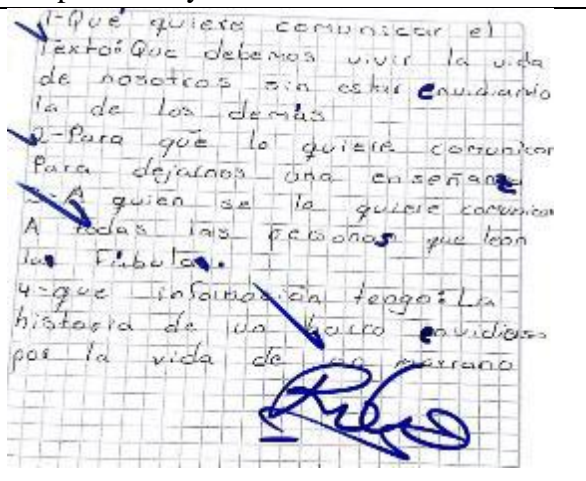 1-Qué quiere comunicar el
Texto: Que debemos vivir la vida
de nosotros sin estar envidiando
la de los demás
2-Para qué lo quiere comunicar
Para dejarnos una enseñanza
3-A quien se lo quiere comunicar
A todas las personas que lean
las Fabulas.
4-que información tengo: La
historia de un burro envidioso
por la vida de un marrano